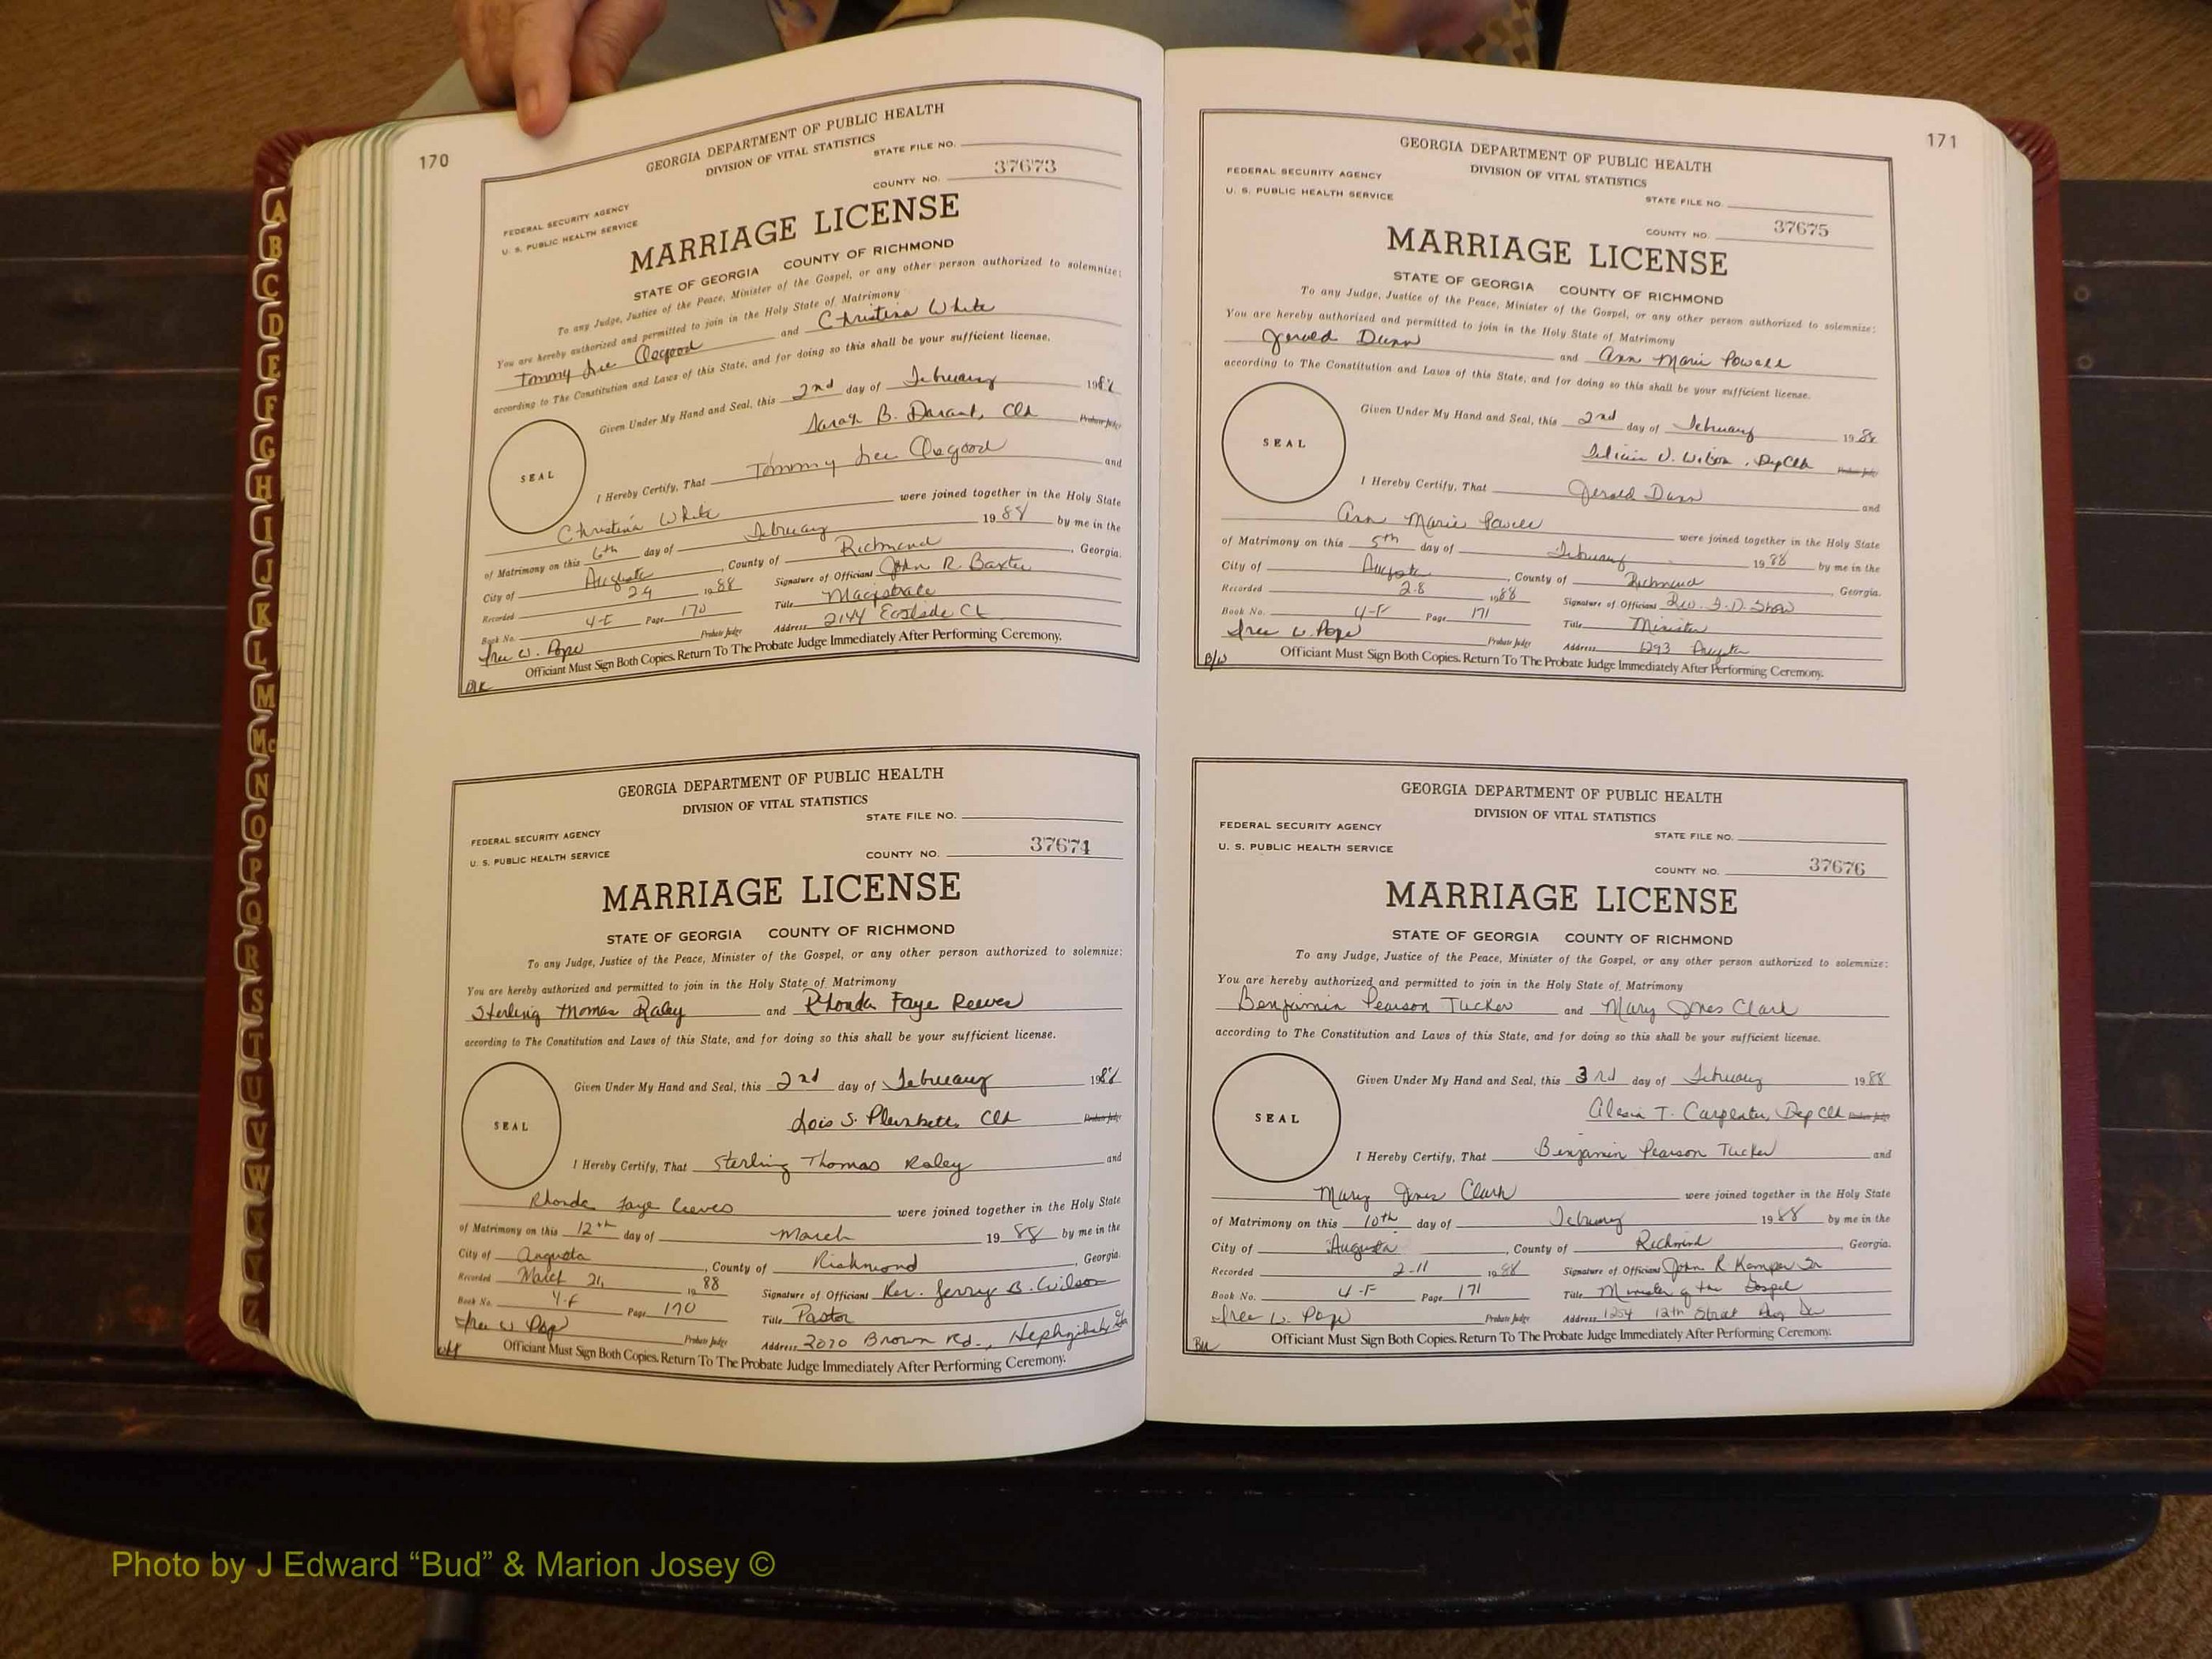 170
GEORGIA DEPARTMENT OF PUBLIC HEALTH
DIVISION OF VITAL STATISTICS
STATE FILE NO.
FEDERAL SECURITY AGENCY
U. S. PUBLIC HEALTH SERVICE
COUNTY NO. 37673
MARRIAGE LICENSE
STATE OF GEORGIA COUNTY OF RICHMOND
To any Judge, Justice of the Peace, Minister of the Gospel, or any other person authorized to solemnize:
You are hereby authorized and permitted to join in the Holy State of Matrimony
Tommy Lee Osgood and Christina White
according to The Constitution and Laws of this State, and for doing so this shall be your sufficient license.
Given Under My Hand and Seal, this 2nd day of February 1988
Sarah B. Clk Probate Judge
SEAL
I Hereby Certify, That Tommy Lee Osgood and
Christina White were joined together in the Holy State
of Matrimony on this 6th day of February 1988 by me in the
City of Augusta, County of Richmond, Georgia.
Recorded 1988 Signature of Officiant John R. Baxter
Book No. 4-F Page 170 Title Magistrate
Probate Judge Address 2144
Officiant Must Sign Both Copies. Return To The Probate Judge Immediately After Performing Ceremony.
GEORGIA DEPARTMENT OF PUBLIC HEALTH
DIVISION OF VITAL STATISTICS
STATE FILE NO.
FEDERAL SECURITY AGENCY
U. S. PUBLIC HEALTH SERVICE
COUNTY NO. 37674
MARRIAGE LICENSE
STATE OF GEORGIA COUNTY OF RICHMOND
To any Judge, Justice of the Peace, Minister of the Gospel, or any other person authorized to solemnize:
You are hereby authorized and permitted to join in the Holy State of Matrimony
Sterling Thomas Raley and Rhonda Faye Reeves
according to The Constitution and Laws of this State, and for doing so this shall be your sufficient license.
Given Under My Hand and Seal, this 2nd day of February 1988
Lois S. Clk Probate Judge
SEAL
I Hereby Certify, That Sterling Thomas Raley and
Rhonda Faye Reeves were joined together in the Holy State
of Matrimony on this 12th day of March 1988 by me in the
City of Augusta, County of Richmond, Georgia.
Recorded March 21, 1988 Signature of Officiant Rev. Jerry B. Wilson
Book No. 4-F Page 170 Title Pastor
Probate Judge Address 2070 Brown Rd., Hephzibah, Ga
Officiant Must Sign Both Copies. Return To The Probate Judge Immediately After Performing Ceremony.
171
GEORGIA DEPARTMENT OF PUBLIC HEALTH
DIVISION OF VITAL STATISTICS
STATE FILE NO.
FEDERAL SECURITY AGENCY
U. S. PUBLIC HEALTH SERVICE
COUNTY NO. 37675
MARRIAGE LICENSE
STATE OF GEORGIA COUNTY OF RICHMOND
To any Judge, Justice of the Peace, Minister of the Gospel, or any other person authorized to solemnize:
You are hereby authorized and permitted to join in the Holy State of Matrimony
Jerald Dunn and Ann Marie Powell
according to The Constitution and Laws of this State, and for doing so this shall be your sufficient license.
Given Under My Hand and Seal, this 2nd day of February 1988
Felicia V. Wilson, Dep Clk Probate Judge
SEAL
I Hereby Certify, That Jerald Dunn and
Ann Marie Powell were joined together in the Holy State
of Matrimony on this 5th day of February 1988 by me in the
City of Augusta, County of Richmond, Georgia.
Recorded 2-8 1988 Signature of Officiant Rev. Shaw
Book No. 4-F Page 171 Title Minister
Probate Judge Address 1293 Augusta
B/W
Officiant Must Sign Both Copies. Return To The Probate Judge Immediately After Performing Ceremony.
GEORGIA DEPARTMENT OF PUBLIC HEALTH
DIVISION OF VITAL STATISTICS
STATE FILE NO.
FEDERAL SECURITY AGENCY
U. S. PUBLIC HEALTH SERVICE
COUNTY NO. 37676
MARRIAGE LICENSE
STATE OF GEORGIA COUNTY OF RICHMOND
To any Judge, Justice of the Peace, Minister of the Gospel, or any other person authorized to solemnize:
You are hereby authorized and permitted to join in the Holy State of Matrimony
Benjamin Pearson Tucker and Mary Jones Clark
according to The Constitution and Laws of this State, and for doing so this shall be your sufficient license.
Given Under My Hand and Seal, this 3rd day of February 1988
Alesia T. Carpenter, Dep Clk Probate Judge
SEAL
I Hereby Certify, That Benjamin Pearson Tucker and
Mary Jones Clark were joined together in the Holy State
of Matrimony on this 10th day of February 1988 by me in the
City of Augusta, County of Richmond, Georgia.
Recorded 2-11 1988 Signature of Officiant John R Kemper Sr
Book No. 4-F Page 171 Title Minister of the Gospel
Probate Judge Address 1254 12th Street Aug
Officiant Must Sign Both Copies. Return To The Probate Judge Immediately After Performing Ceremony.
A
B
C
D
E
F
G
H
I
J
K
L
M
Mc
N
O
P
Q
R
S
T
U
V
W
X
Y
Z
Photo by J Edward “Bud” & Marion Josey ©